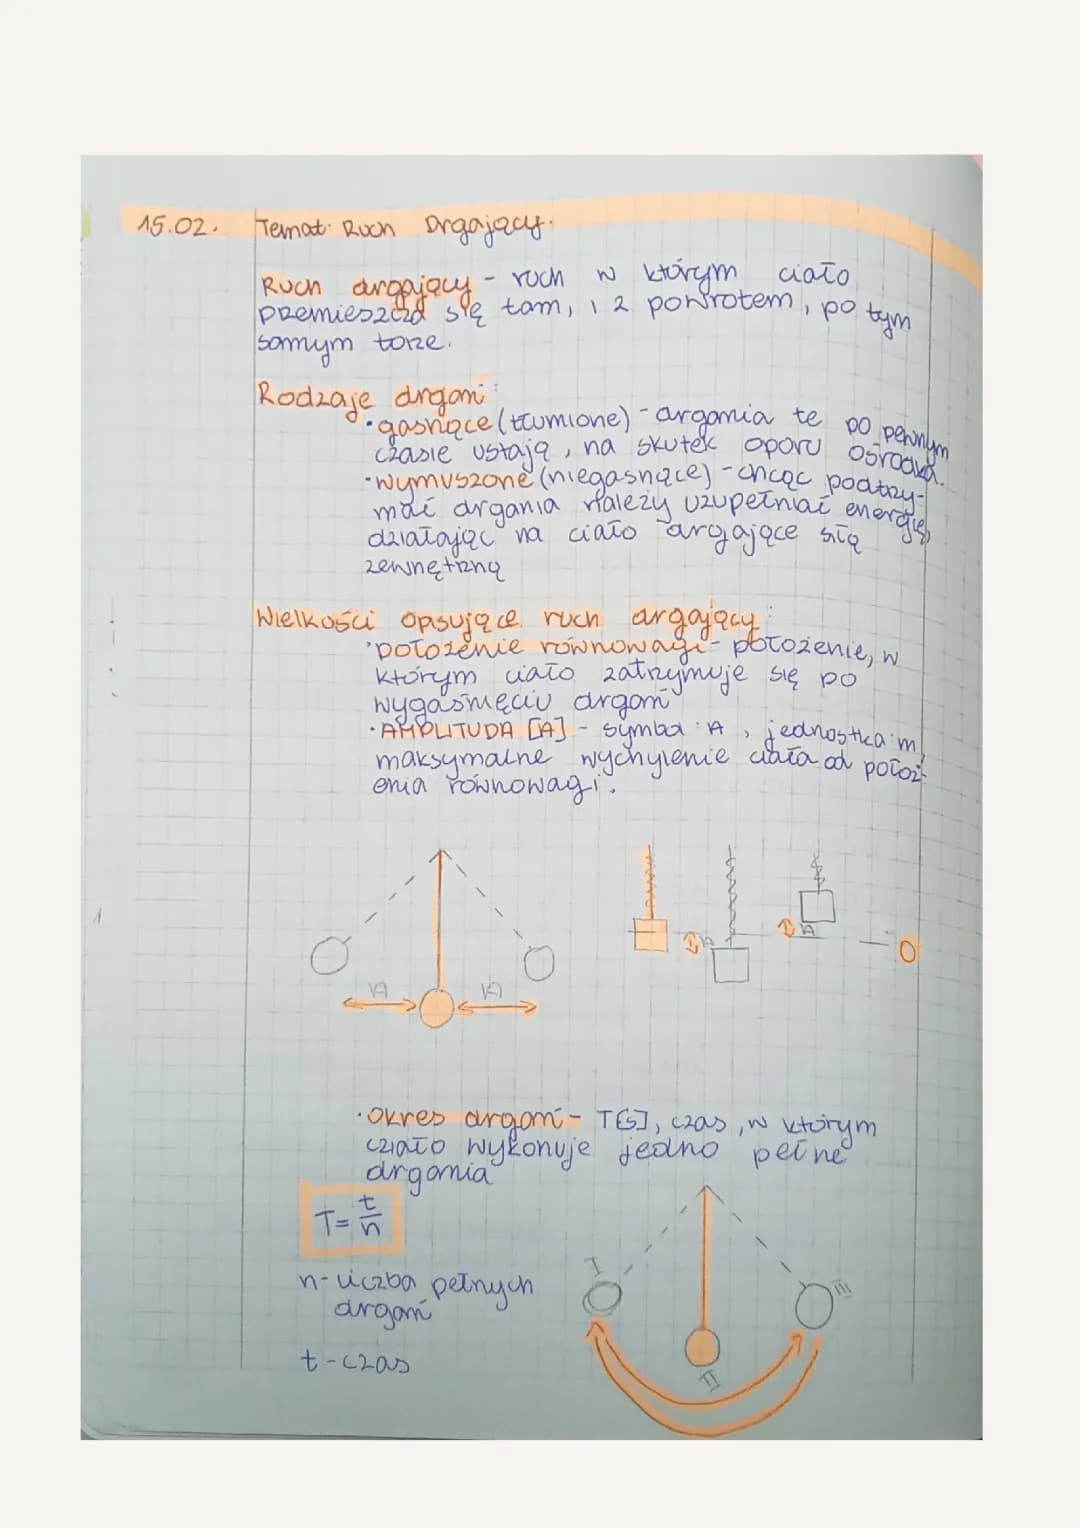 15.02. Temat: Ruch Drgający.
Ruch drgający - ruch w którym ciało
przemieszcza się tam, i z powrotem, po tym
samym torze.
Rodzaje drgań:
• gasnące (tłumione) - drgania te po pewnym
czasie ustają, na skutek oporu ośrodka.
• wymuszone (niegasnące) - chcąc podtrzy-
mać drgania należy uzupełniać energię,
działając na ciało drgające siłą
zewnętrzną
Wielkości opisujące ruch drgający:
• położenie równowagi - położenie, w
którym ciało zatrzymuje się po
wygaśnięciu drgań
• AMPLITUDA [A] - symbol: A, jednostka: m
maksymalne wychylenie ciała od położ-
enia równowagi.
A A
A A
• Okres drgań - T[s], czas, w którym
ciało wykonuje jedno pełne
drgania
T = t/n
n - liczba pełnych
drgań
t - czas
I
III
II